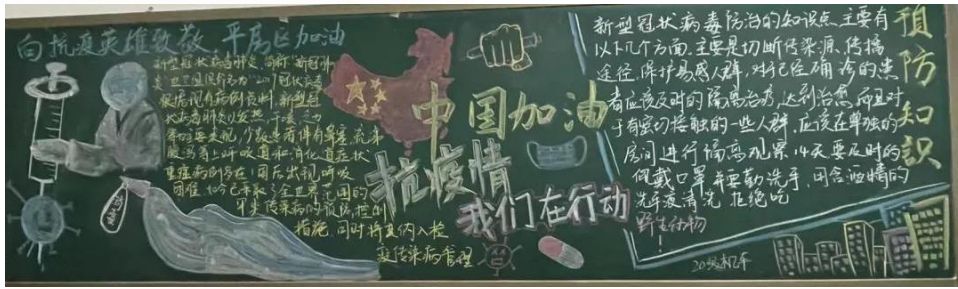 向抗疫英雄致敬 平房区加油
新型冠状病毒肺炎,简称"新冠肺
炎"世卫组织命名为"2019冠状病毒
根据现有病例资料,新型冠
状病毒肺炎以发热、干咳、乏力
等为主要表现,少数患者伴有鼻塞,流涕
腹泻等上呼吸道和消化道症状
重症病例多在1周后出现呼吸
困难
甲类传染病的预防,控制
措施,同时将其纳入检
疫传染病管理
中国加油
抗疫情
我们在行动
新型冠状病毒防治的知识点主要有
以下几个方面.主要是切断传染源、传播
途径,保护易感人群,对已经确诊的患
者应该及时的隔离治疗,达到治愈,而且对
于有密切接触的一些人群,应该在单独的
房间进行隔离观察,14天要及时的
佩戴口罩并要勤洗手,用含酒精的
洗手液清洗 拒绝吃
野生动物
预防知識